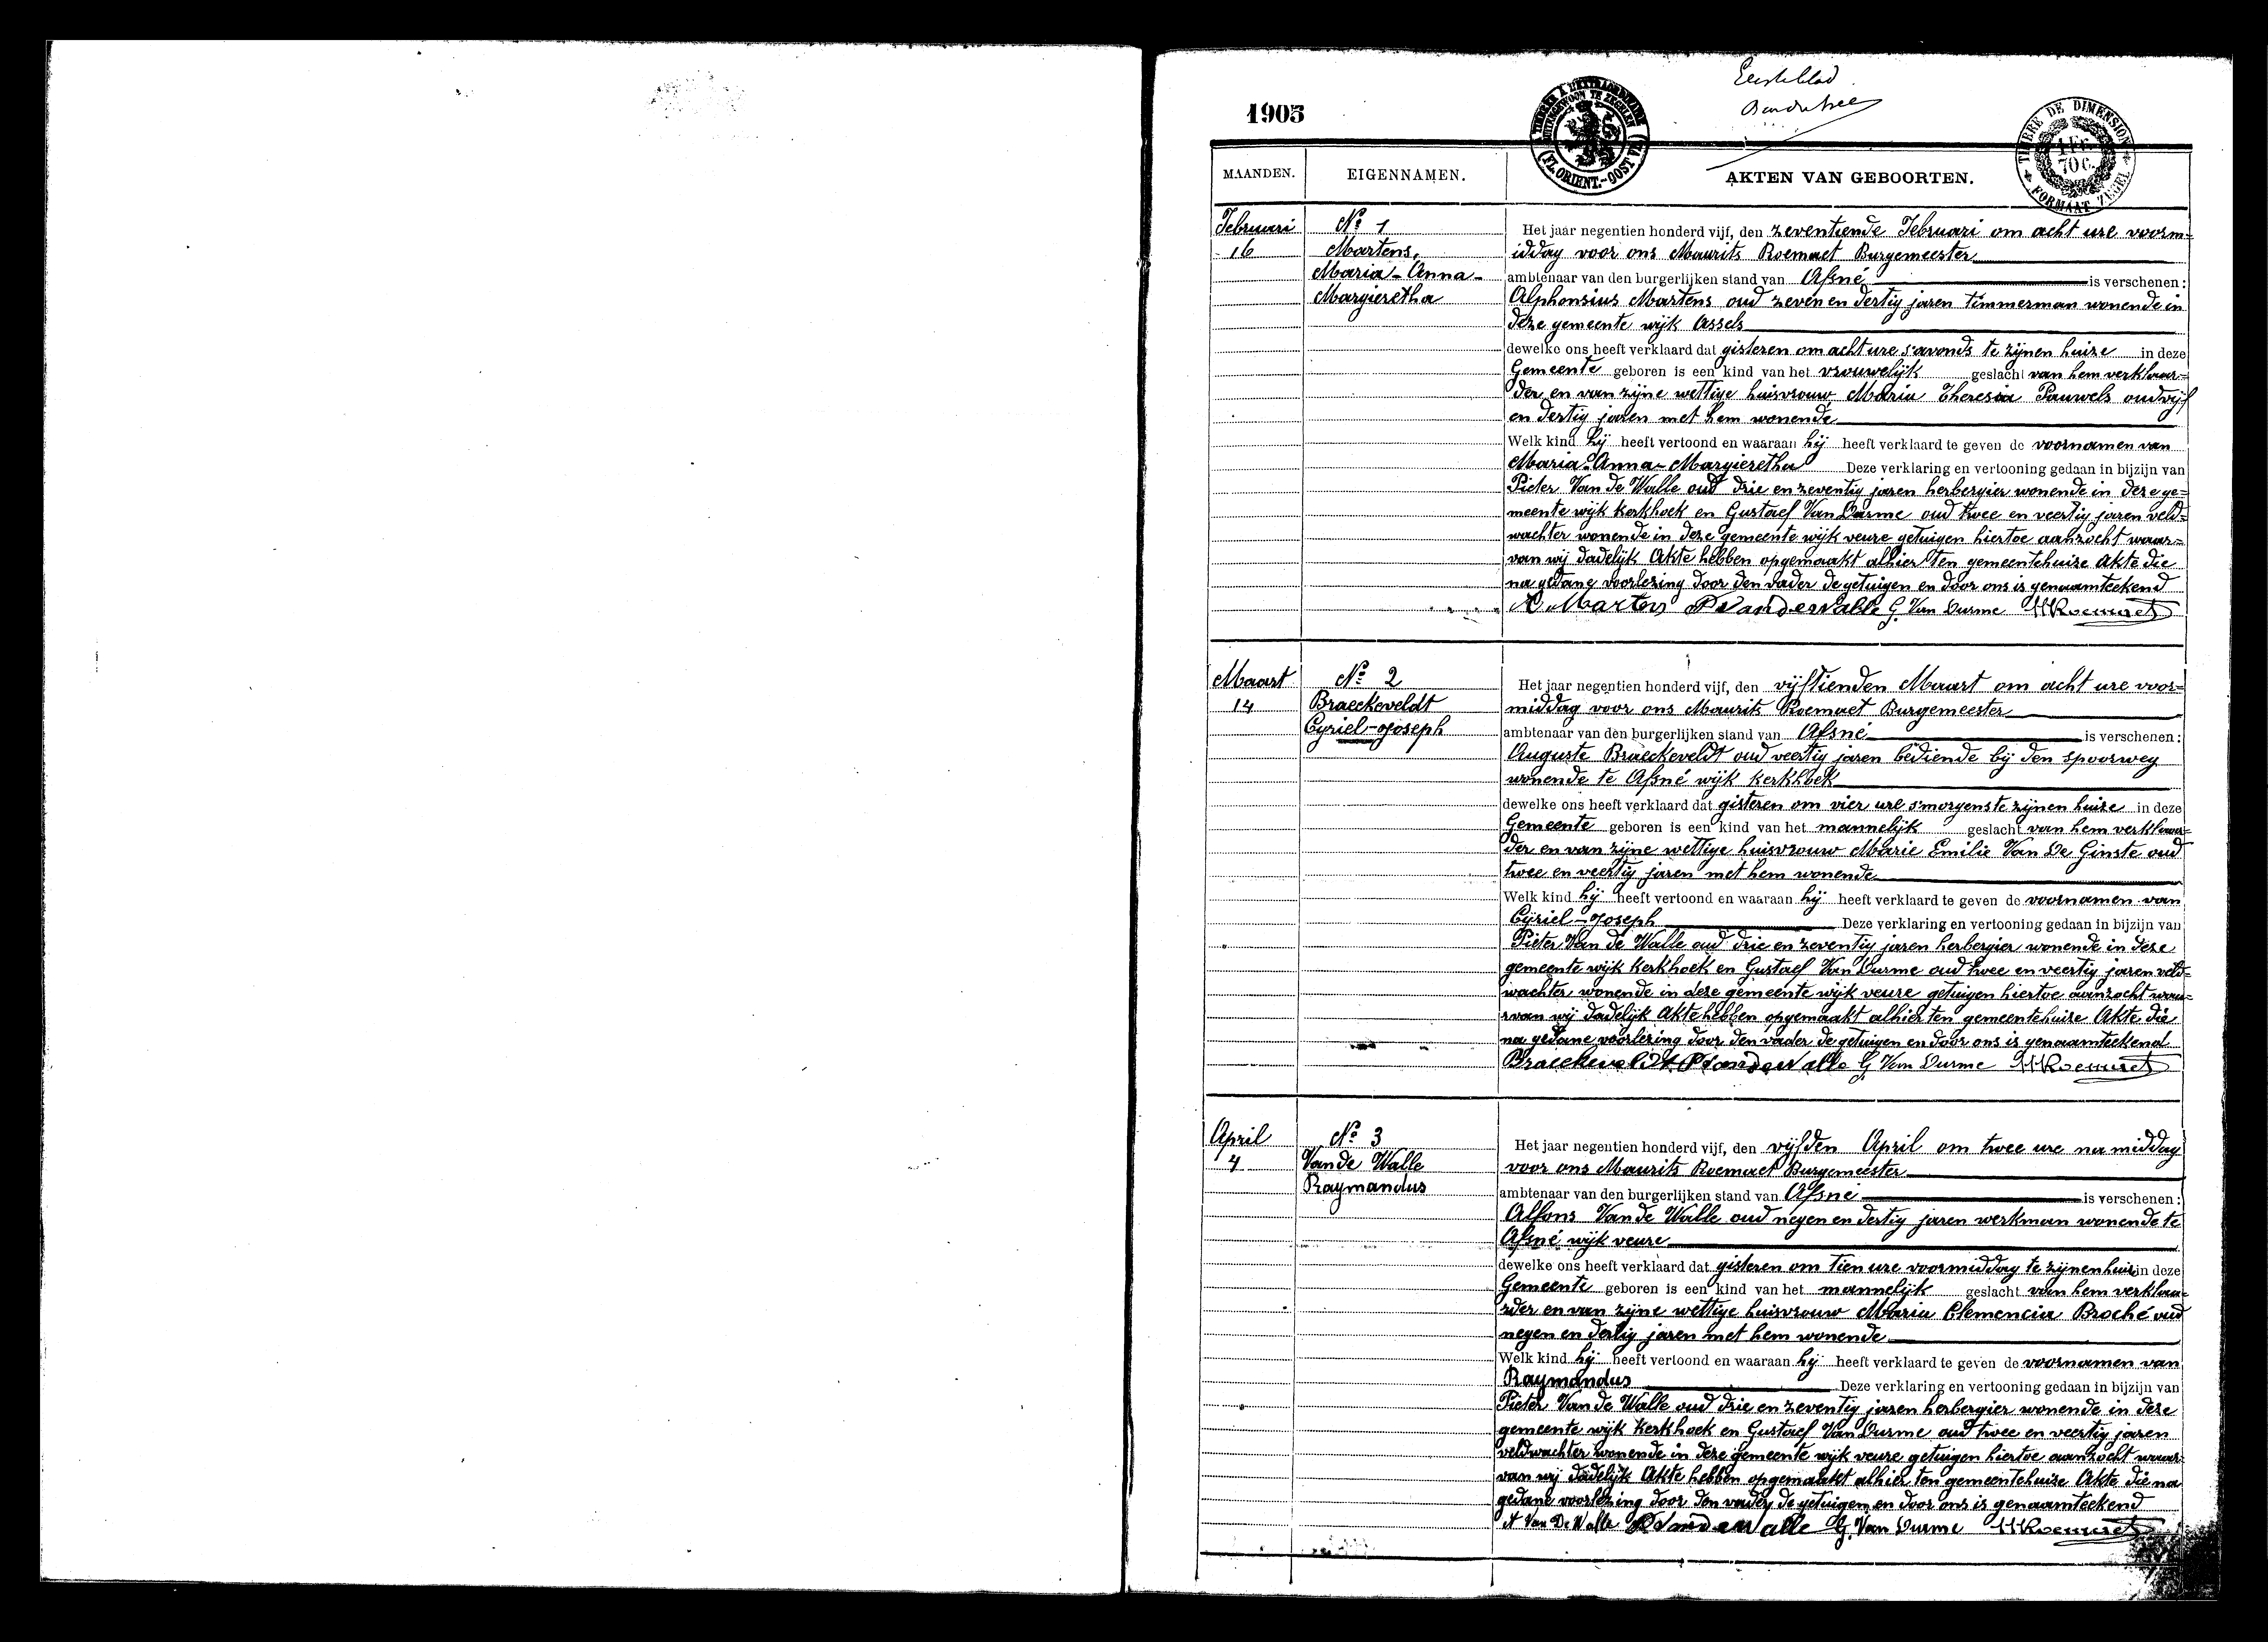 Eerste blad
1905
TIMBRE A L'EXTRAORDINAIRE
BUITENGEWOON TE ZEGELEN
(FL. ORIENT.-OOST VL.)
TIMBRE DE DIMENSION
1 FR.
70 C.
FORMAAT ZEGEL
MAANDEN. EIGENNAMEN. AKTEN VAN GEBOORTEN.
Februari
16
No 1
Martens,
Maria-Anna-
Margieretha
Het jaar negentien honderd vijf, den zeventiende Februari om acht ure voorm=
iddag voor ons Maurits Roemaet Burgemeester
ambtenaar van den burgerlijken stand van Afsné is verschenen:
Alphonsius Martens oud zeven en dertig jaren timmerman wonende in
deze gemeente wijk Assels
dewelke ons heeft verklaard dat gisteren om acht ure s'avonds te zijnen huize in deze
Gemeente geboren is een kind van het vrouwelijk geslacht van hem verklaar=
der en van zijne wettige huisvrouw Maria Theresia Pauwels oud vijf
en dertig jaren met hem wonende
Welk kind hij heeft vertoond en waaraan hij heeft verklaard te geven de voornamen van
Maria-Anna-Margieretha Deze verklaring en vertooning gedaan in bijzijn van
Pieter Van de Walle oud drie en zeventig jaren herbergier wonende in deze ge=
meente wijk kerkhoek en Gustaef Van Durme oud twee en veertig jaren veld=
wachter wonende in deze gemeente wijk veure getuigen hiertoe aanzocht waar=
van wij dadelijk Akte hebben opgemaakt alhier ten gemeentehuize Akte die
na gedane voorlezing door den vader de getuigen en door ons is genaamteekend
A Martens P Vandewalle G. Van Durme M Roemaet
Maart
14
No 2
Braeckeveldt
Cyriel-Joseph
Het jaar negentien honderd vijf, den vijftienden Maart om acht ure voor=
middag voor ons Maurits Roemaet Burgemeester
ambtenaar van den burgerlijken stand van Afsné is verschenen:
Auguste Braeckeveldt oud veertig jaren bediende bij den spoorweg
wonende te Afsné wijk kerkhoek
dewelke ons heeft verklaard dat gisteren om vier ure s'morgens te zijnen huize in deze
Gemeente geboren is een kind van het mannelijk geslacht van hem verklaar=
der en van zijne wettige huisvrouw Marie Emilie Van De Ginste oud
twee en veertig jaren met hem wonende
Welk kind hij heeft vertoond en waaraan hij heeft verklaard te geven de voornamen van
Cyriel-Joseph Deze verklaring en vertooning gedaan in bijzijn van
Pieter Van de Walle oud drie en zeventig jaren herbergier wonende in deze
gemeente wijk kerkhoek en Gustaef Van Durme oud twee en veertig jaren veld=
wachter wonende in deze gemeente wijk veure getuigen hiertoe aanzocht waa=
rvan wij dadelijk Akte hebben opgemaakt alhier ten gemeentehuize Akte die
na gedane voorlezing door den vader de getuigen en door ons is genaamteekend
Braeckeveldt P Vandewalle G Van Durme M Roemaet
April
4
No 3
Van de Walle
Raymandus
Het jaar negentien honderd vijf, den vijfden April om twee ure na middag
voor ons Maurits Roemaet Burgemeester
ambtenaar van den burgerlijken stand van Afsné is verschenen:
Alfons Van de Walle oud negen en dertig jaren werkman wonende te
Afsné wijk veure
dewelke ons heeft verklaard dat gisteren om tien ure voormiddag te zijnen huize in deze
Gemeente geboren is een kind van het mannelijk geslacht van hem verklaa=
rder en van zijne wettige huisvrouw Maria Clemencia Broché oud
negen en dertig jaren met hem wonende
Welk kind hij heeft vertoond en waaraan hij heeft verklaard te geven de voornamen van
Raymandus Deze verklaring en vertooning gedaan in bijzijn van
Pieter Van de Walle oud drie en zeventig jaren herbergier wonende in deze
gemeente wijk kerkhoek en Gustaef Van Durme oud twee en veertig jaren
veldwachter wonende in deze gemeente wijk veure getuigen hiertoe aanzocht waar=
van wij dadelijk Akte hebben opgemaakt alhier ten gemeentehuize Akte die na
gedane voorlezing door den vader de getuigen en door ons is genaamteekend
A Van De Walle P Vandewalle G. Van Durme M Roemaet